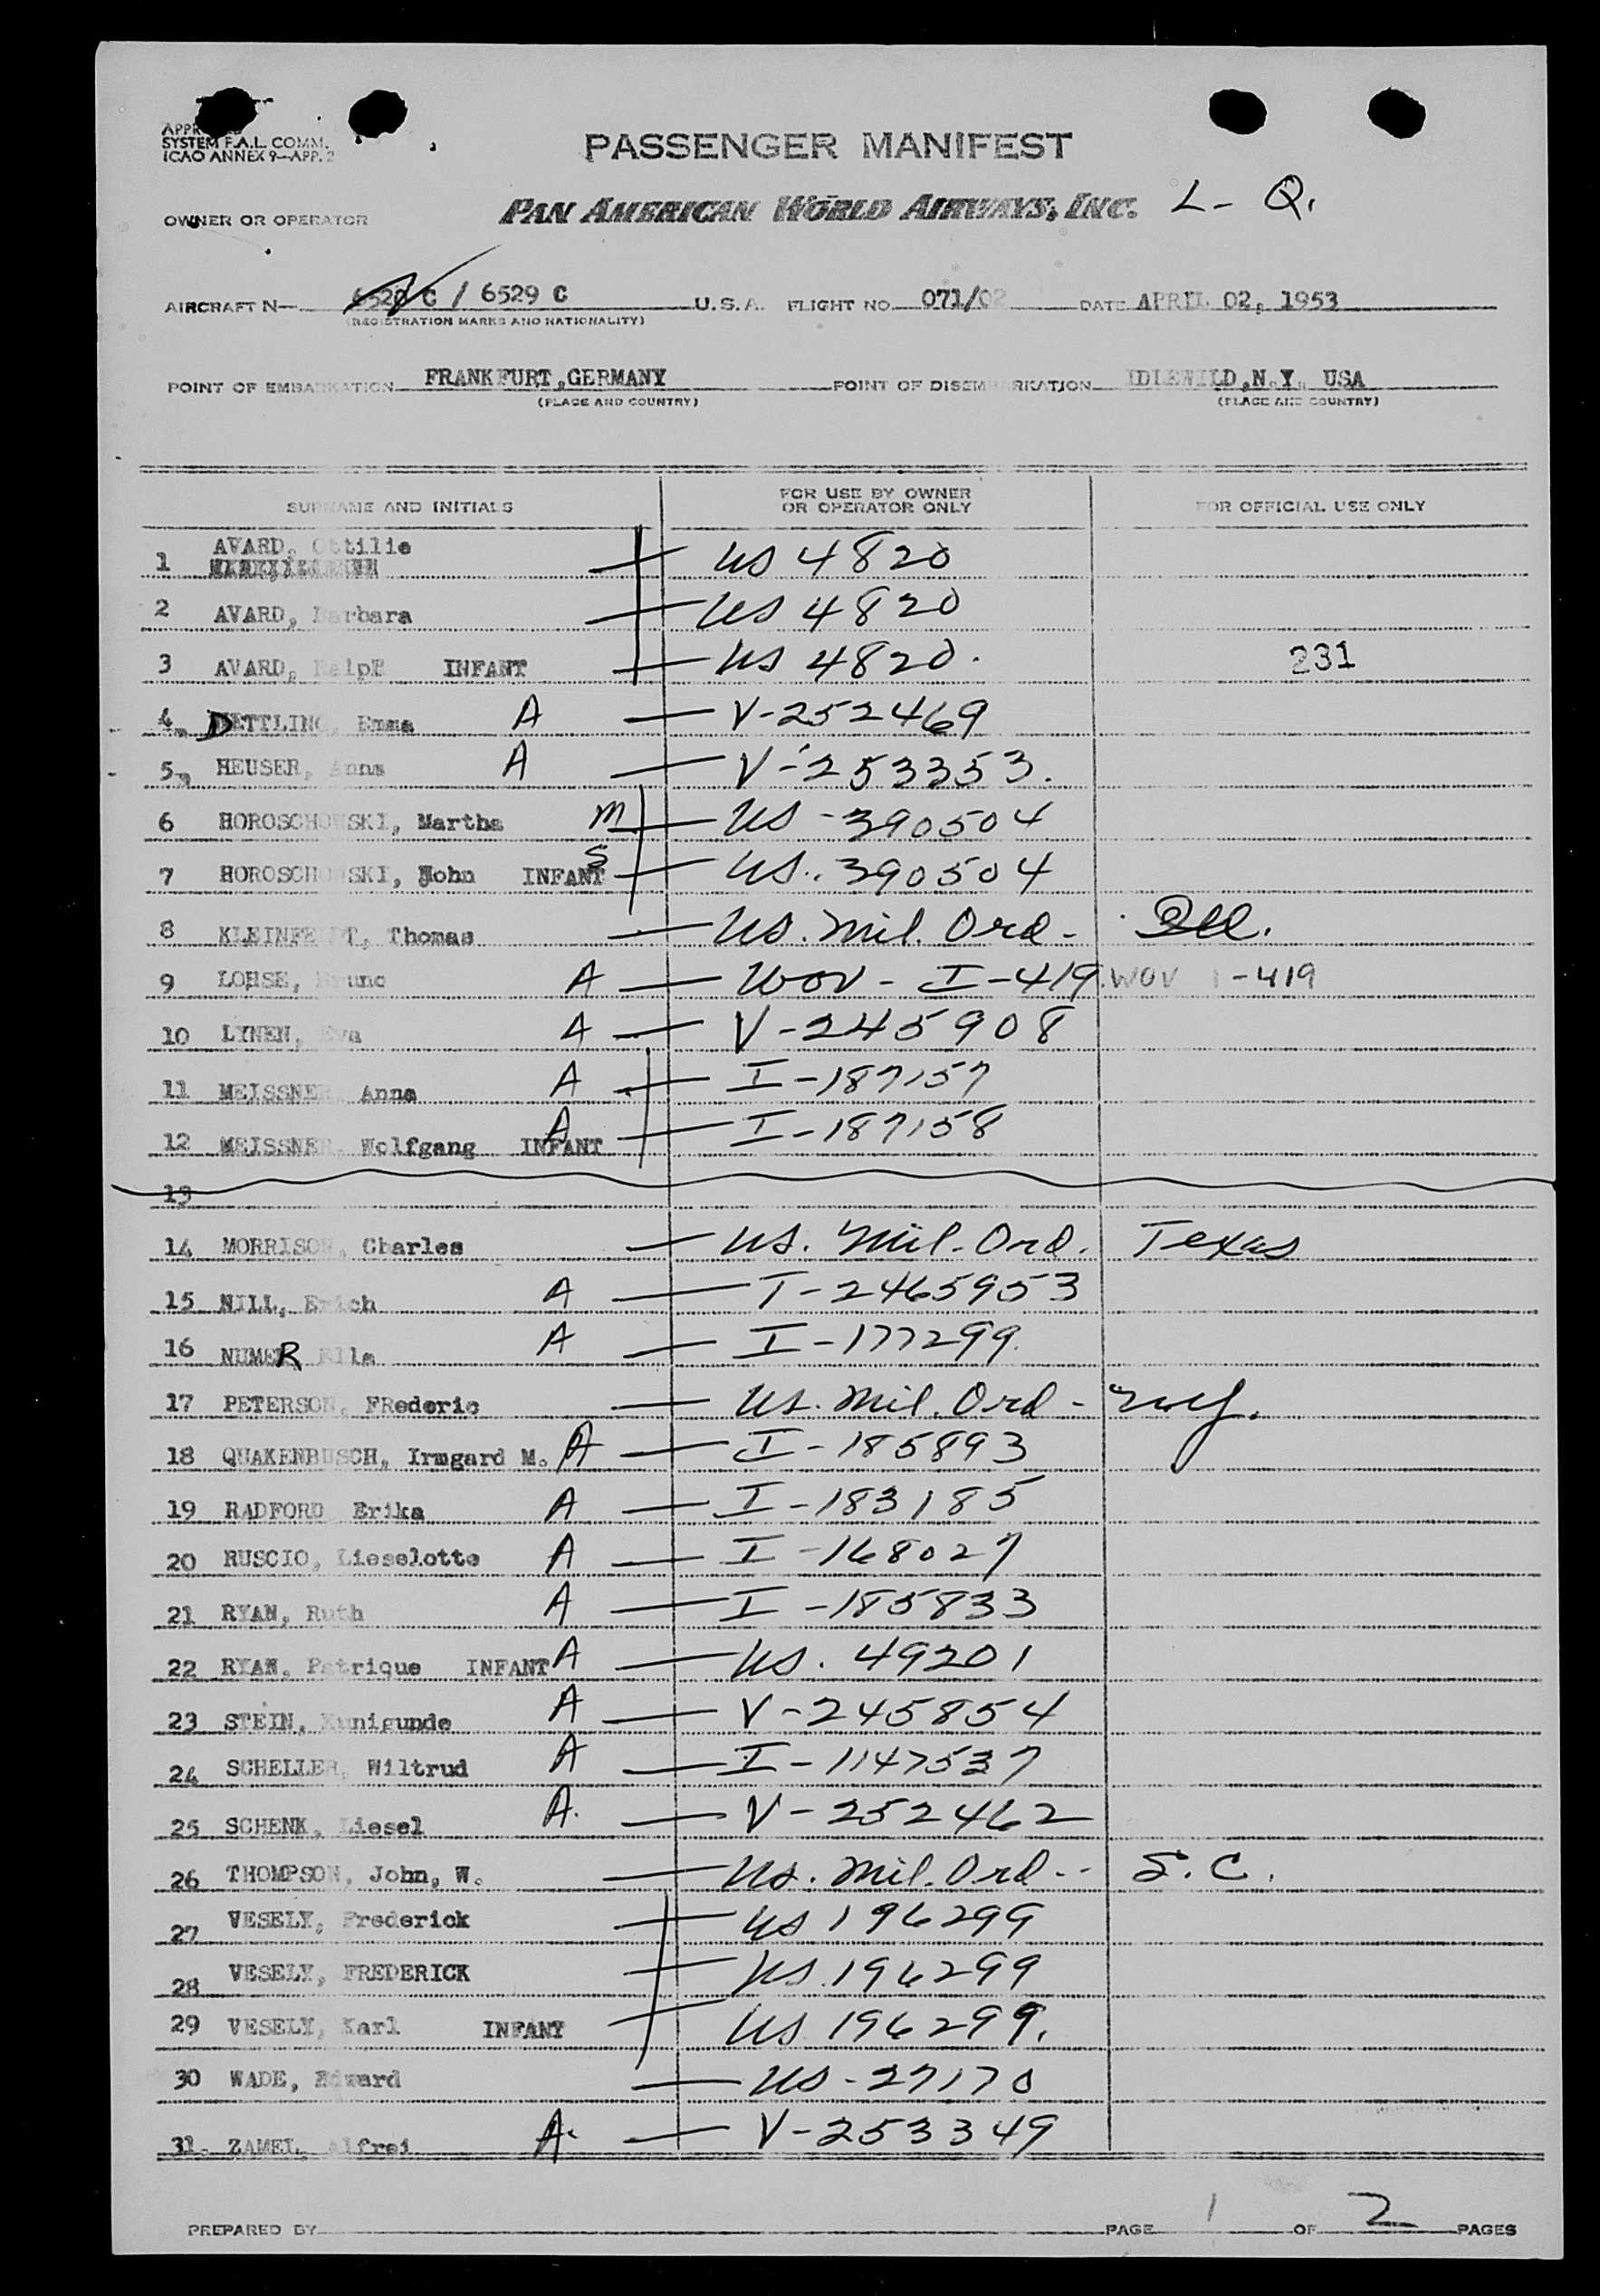 SYSTEM F.A.L. COMM.
ICAO ANNEX 9—APP. 2
PASSENGER MANIFEST
OWNER OR OPERATOR PAN AMERICAN WORLD AIRWAYS, INC. L- Q.
AIRCRAFT N— 6520 C / 6529 C U.S.A. FLIGHT NO. 071/02 DATE APRIL 02, 1953
(REGISTRATION MARKS AND NATIONALITY)
POINT OF EMBARKATION FRANKFURT,GERMANY POINT OF DISEMBARKATION IDLEWILD,N.Y. USA
(PLACE AND COUNTRY) (PLACE AND COUNTRY)
SURNAME AND INITIALS FOR USE BY OWNER OR OPERATOR ONLY FOR OFFICIAL USE ONLY
1 AVARD, Ottilie US 4820
2 AVARD, Barbara US 4820
3 AVARD, INFANT US 4820. 231
4. DETTLING, Emma A V-252469
5. HEUSER, Anna A V-253353.
6 HOROSCHOWSKI, Martha M US-390504
7 HOROSCHOWSKI, John INFANT S US.390504
8 Thomas US. Mil. Ord-
9 LOHSE, Bruno A WOV-I-419. WOV I-419
10 LYNEN, Eva A V-245908
11 MEISSNER, Anna A I-187157
12 MEISSNER, Wolfgang INFANT A I-187158
13
14 MORRISON, Charles US. Mil. Ord. Texas
15 NILL, Erich A T-2465953
16 NUMER, Ella A I-177299.
17 PETERSON, FRederic US. Mil. Ord-
18 QUAKENBUSCH, Irmgard M. A I-185893
19 RADFORD Erika A I-183185
20 RUSCIO, Lieselotte A I-168027
21 RYAN, Ruth A I-185833
22 RYAN, Patrique INFANT A US. 49201
23 STEIN, Kunigunde A V-245854
24 SCHELLER, Wiltrud A I-1147537
25 SCHENK, Liesel A. V-252462
26 THOMPSON, John, W. US. Mil. Ord-- S.C.
27 VESELY, Frederick US 196299
28 VESELY, FREDERICK US.196299
29 VESELY, Karl INFANT US 196299.
30 WADE, Edward US-27170
31. ZAMEL, A. V-253349
PREPARED BY PAGE 1 OF 2 PAGES